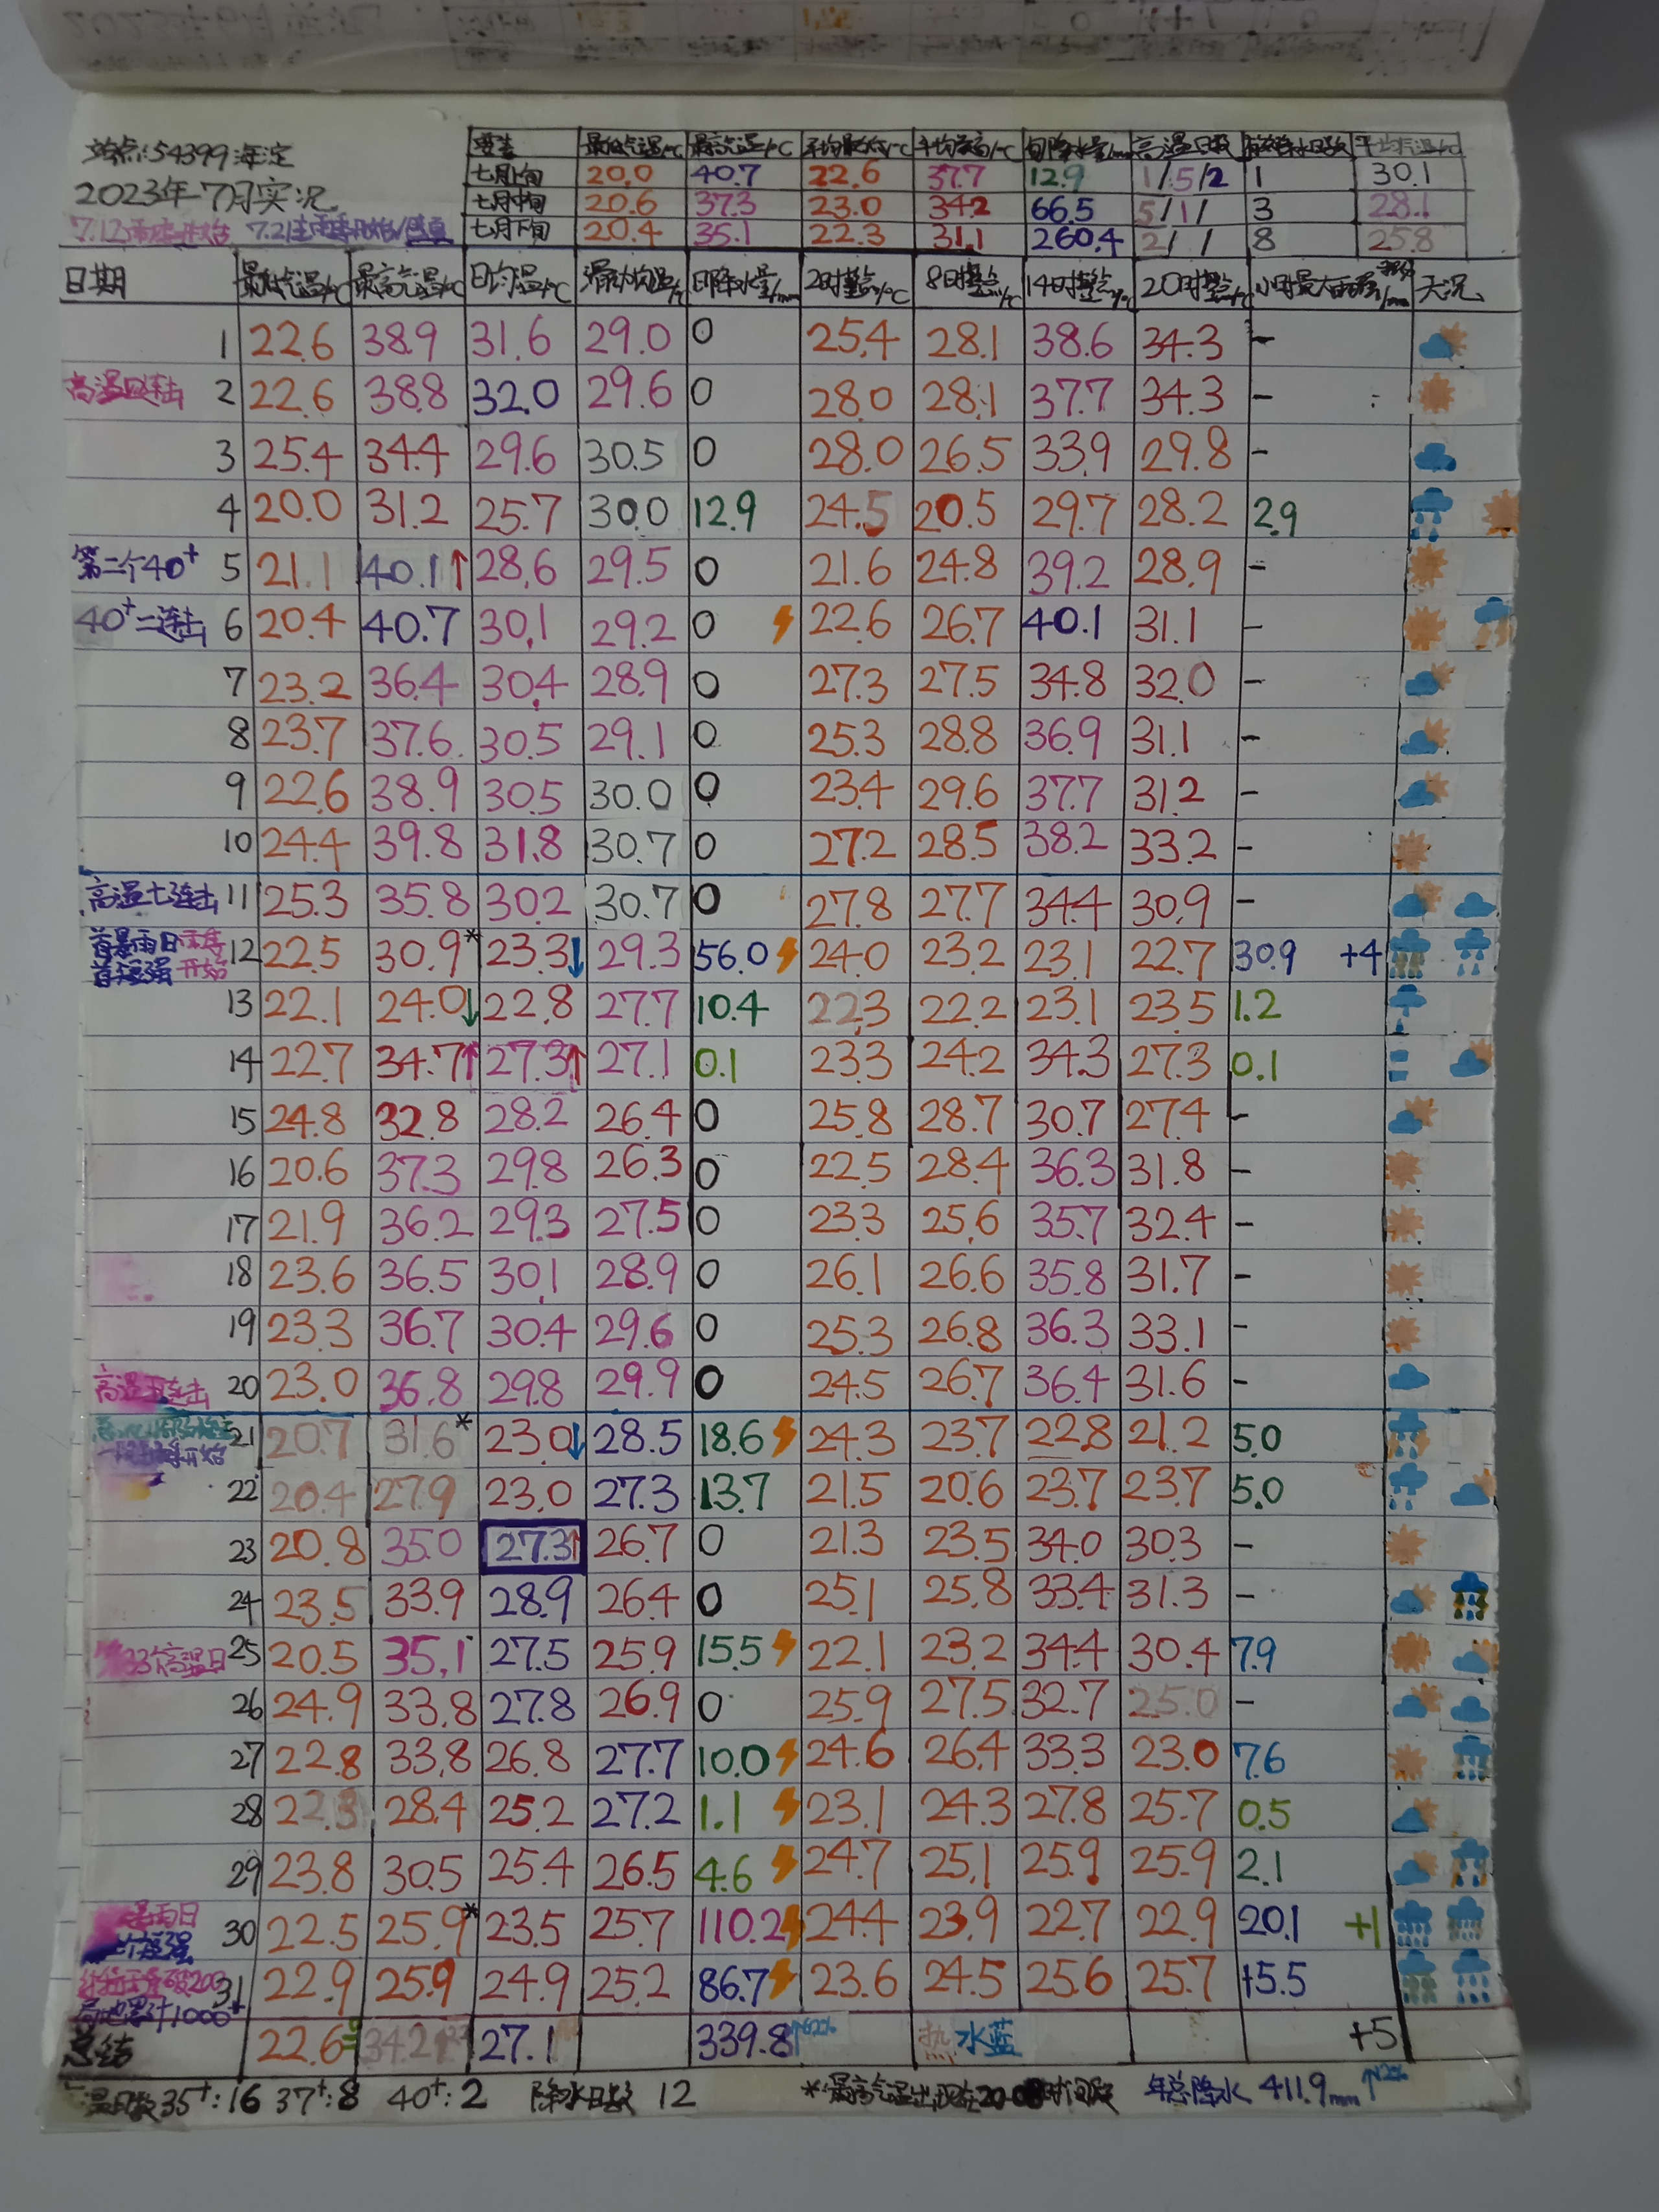 站点:54399 海淀
2023年7月实况
7.12雨季开始 7.21主雨季开始/
要素 最低气温/℃ 最高气温/℃ 平均最低/℃ 平均最高/℃ 旬降水量/mm 高温日数 有效降水日数 平均气温/℃
七月上旬 20.0 40.7 22.6 37.7 12.9 1/5/2 1 30.1
七月中旬 20.6 37.3 23.0 34.2 66.5 5/1/ 3 28.1
七月下旬 20.4 35.1 22.3 31.1 260.4 2/ / 8 25.8
日期 最低气温/℃ 最高气温/℃ 日均温/℃ 滑动均温/℃ 日降水量/mm 2时整点/℃ 8时整点/℃ 14时整点/℃ 20时整点/℃ 小时最大雨强/mm 天况
1 22.6 38.9 31.6 29.0 0 25.4 28.1 38.6 34.3 -
高温四连击 2 22.6 38.8 32.0 29.6 0 28.0 28.1 37.7 34.3 -
3 25.4 34.4 29.6 30.5 0 28.0 26.5 33.9 29.8 -
4 20.0 31.2 25.7 30.0 12.9 24.5 20.5 29.7 28.2 2.9
第二个40+ 5 21.1 40.1↑ 28.6 29.5 0 21.6 24.8 39.2 28.9 -
40+二连击 6 20.4 40.7 30.1 29.2 0 22.6 26.7 40.1 31.1 -
7 23.2 36.4 30.4 28.9 0 27.3 27.5 34.8 32.0 -
8 23.7 37.6 30.5 29.1 0 25.3 28.8 36.9 31.1 -
9 22.6 38.9 30.5 30.0 0 23.4 29.6 37.7 31.2 -
10 24.4 39.8 31.8 30.7 0 27.2 28.5 38.2 33.2 -
高温七连击 11 25.3 35.8 30.2 30.7 0 27.8 27.7 34.4 30.9 -
首暴雨日 雨季 首短强 开始 12 22.5 30.9* 23.3↓ 29.3 56.0 24.0 23.2 23.1 22.7 30.9 +4
13 22.1 24.0↓ 22.8 27.7 10.4 22.3 22.2 23.1 23.5 1.2
14 22.7 34.7↑ 27.3↑ 27.1 0.1 23.3 24.2 34.3 27.3 0.1
15 24.8 32.8 28.2 26.4 0 25.8 28.7 30.7 27.4 -
16 20.6 37.3 29.8 26.3 0 22.5 28.4 36.3 31.8 -
17 21.9 36.2 29.3 27.5 0 23.3 25.6 35.7 32.4 -
18 23.6 36.5 30.1 28.9 0 26.1 26.6 35.8 31.7 -
19 23.3 36.7 30.4 29.6 0 25.3 26.8 36.3 33.1 -
高温五连击 20 23.0 36.8 29.8 29.9 0 24.5 26.7 36.4 31.6 -
开始 21 20.7 31.6* 23.0↓ 28.5 18.6 24.3 23.7 22.8 21.2 5.0
22 20.4 27.9 23.0 27.3 13.7 21.5 20.6 23.7 23.7 5.0
23 20.8 35.0 27.3↑ 26.7 0 21.3 23.5 34.0 30.3 -
24 23.5 33.9 28.9 26.4 0 25.1 25.8 33.4 31.3 -
33个高温日 25 20.5 35.1 27.5 25.9 15.5 22.1 23.2 34.4 30.4 7.9
26 24.9 33.8 27.8 26.9 0 25.9 27.5 32.7 25.0 -
27 22.8 33.8 26.8 27.7 10.0 24.6 26.4 33.3 23.0 7.6
28 22.3 28.4 25.2 27.2 1.1 23.1 24.3 27.8 25.7 0.5
29 23.8 30.5 25.4 26.5 4.6 24.7 25.1 25.9 25.9 2.1
暴雨日 短强 30 22.5 25.9* 23.5 25.7 110.2 24.4 23.9 22.7 22.9 20.1 +1
31 22.9 25.9 24.9 25.2 86.7 23.6 24.5 25.6 25.7 15.5
局地累计1000+
总结 22.6 34.2 27.1 339.8↑62% 热 水蓝 +5
温日数35+:16 37+:8 40+:2 降水日数 12 *最高气温出现在20-08时间段 年总降水 411.9mm